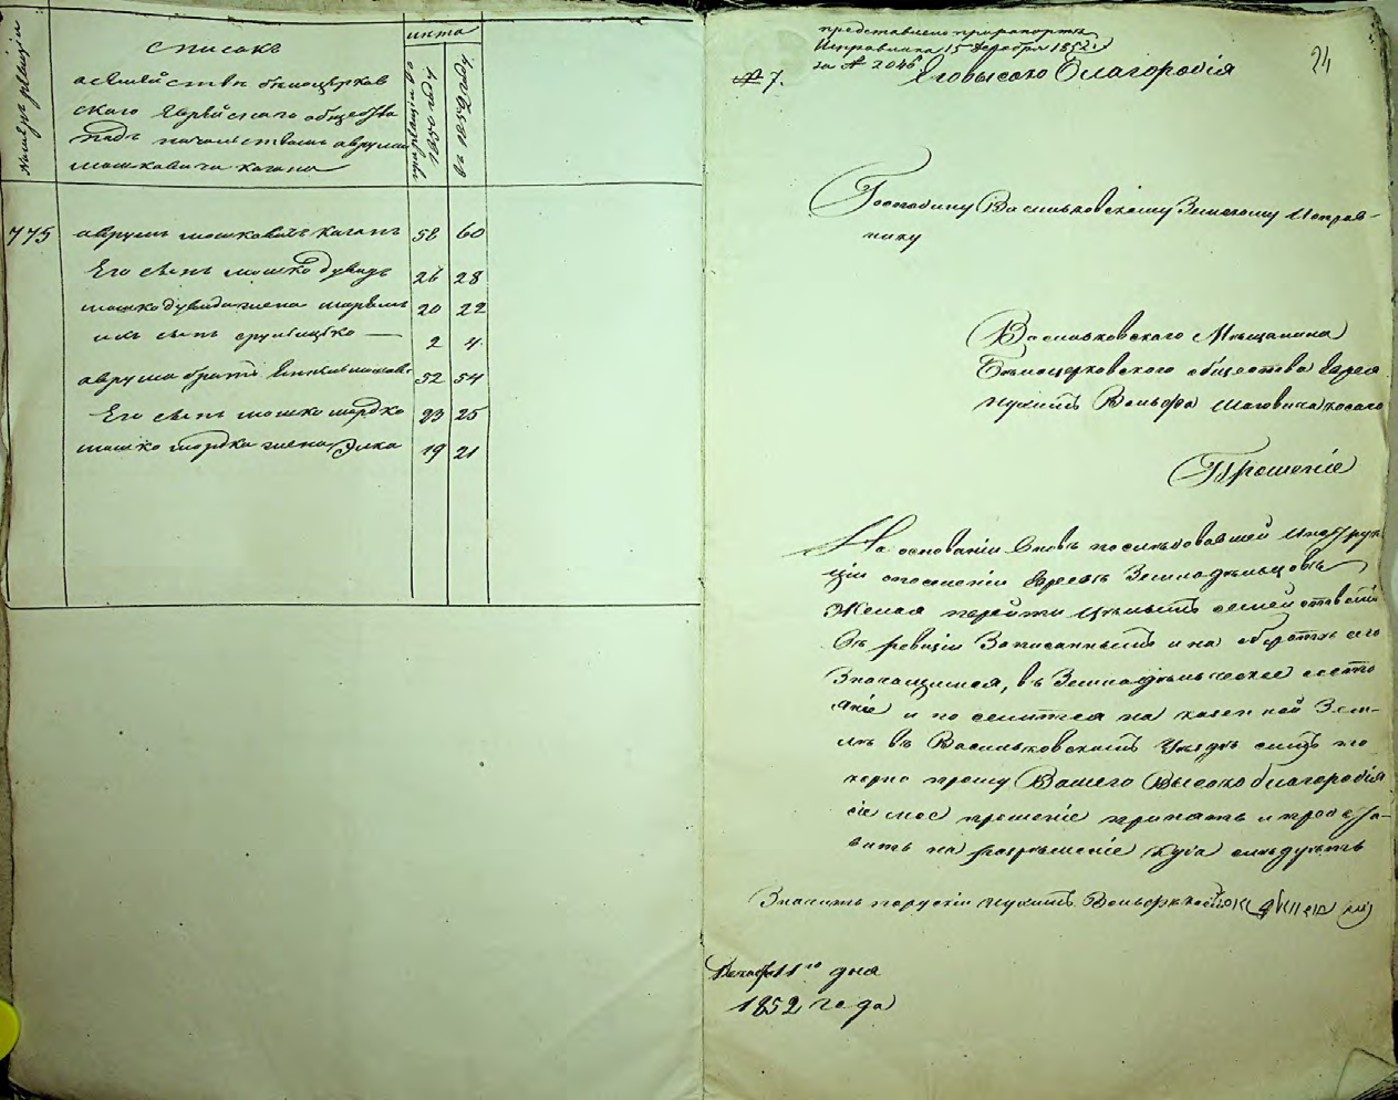 Номеръ ревизіи
списокъ
о семействѣ бѣлоцерков
скаго Еврейскаго общества
подъ начальствомъ аврума
мошковича кагана
лѣта
по ревизіи
1850 году
въ 1852 году
775 аврумъ мошковичъ каганъ 58 60
Его сынъ мошко дувидъ 26 28
мошко дувида жена 20 22
ихъ сынъ 2 4
аврума братъ 52 54
Его сынъ мошко мордко 23 25
мошко мордка жена Элка 19 21
представлено при рапортѣ
Исправника 15 декабря 1852 г
за № 2046
24
№ 7.
Его высоко Благородія
Господину Васильковскому Земскому Исправ-
нику
Васильковскаго Мѣщанина
Бѣлоцерковскаго общества Еврея
Нухимъ Вольфа
Прошеніе
На основаніи вновь послѣдовавшей Инструк
ціи о поселеніи Евреевъ Земледѣльцовъ
Желая перейти цѣлымъ семействомъ
въ ревизіи Записаннымъ и на оборотѣ сего
Значащимся, въ Земледѣльческое состо
яніе и поселится на казенной Зем-
лѣ въ Васильковскомъ Уѣздѣ симъ по
корно прошу Вашего Высокоблагородія
сіе мое прошеніе принять и предста-
вить на разрѣшеніе куда слѣдуетъ
Значитъ по руски Нухимъ Вольфъ
Декабря 11го дня
1852 года